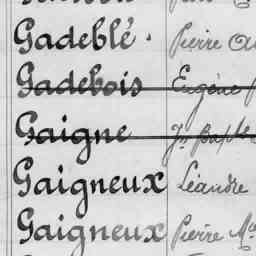 Gadeblé. Pierre
Gadebois Eugène
Gaigne Jn Bapte
Gaigneux Léandre
Gaigneux Pierre